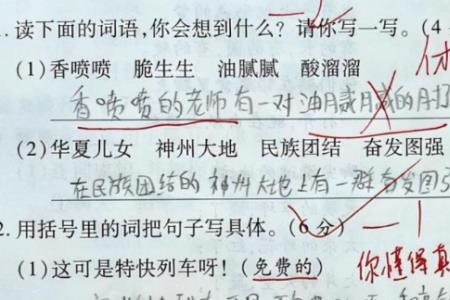 1.读下面的词语,你会想到什么?请你写一写。(4
(1)香喷喷 脆生生 油腻腻 酸溜溜
香喷喷的老师有一对油月戚月戚的月
(2)华夏儿女 神州大地 民族团结 奋发图强
在民族团结的神州大地上有一群奋发图
2.用括号里的词把句子写具体。(6分)
(1)这可是特快列车呀!(免费的) 你懂得真